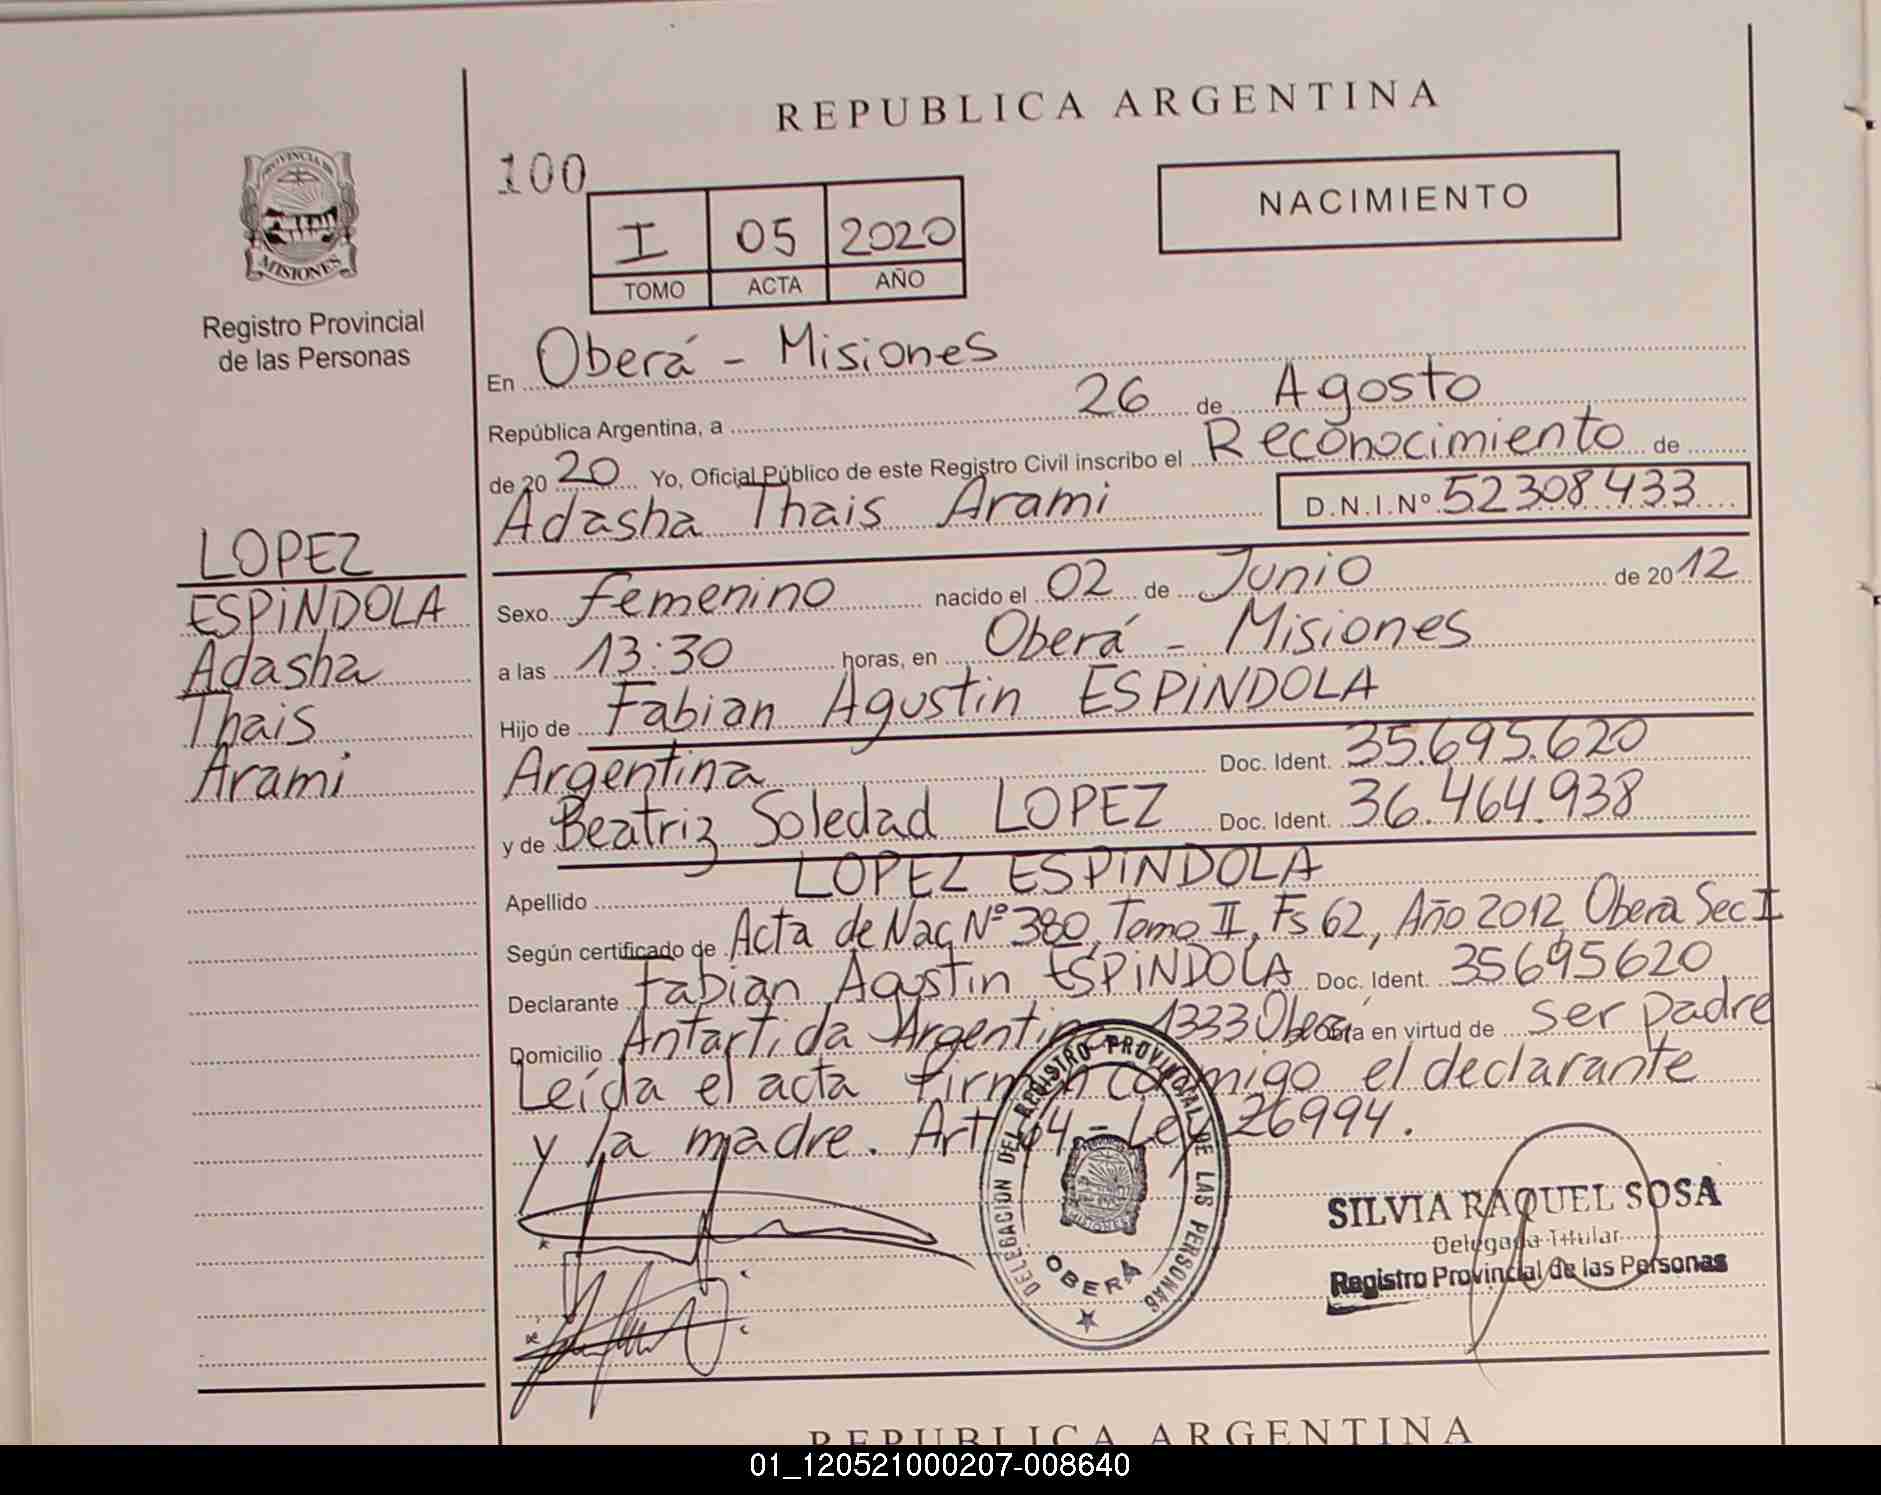 REPUBLICA ARGENTINA
100
NACIMIENTO
I 05 2020
TOMO ACTA AÑO
PROVINCIA DE
MISIONES
Registro Provincial
de las Personas
En Oberá - Misiones
República Argentina, a 26 de Agosto
de 20 20 Yo, Oficial Público de este Registro Civil inscribo el Reconocimiento de
Adasha Thais Arami D.N.I.Nº 52308433
LOPEZ
ESPINDOLA
Adasha
Thais
Arami
Sexo femenino nacido el 02 de Junio de 20 12
a las 13:30 horas, en Oberá - Misiones
Hijo de Fabian Agustin ESPINDOLA
Argentina Doc. Ident. 35.695.620
y de Beatriz Soledad LOPEZ Doc. Ident. 36.464.938
Apellido LOPEZ ESPINDOLA
Según certificado de Acta de Nac Nº 380, Tomo II, Fs 62, Año 2012, Obera Sec I
Declarante Fabian Agustin ESPINDOLA Doc. Ident. 35695620
Domicilio Antartida Argentina 1333 Oberá Obra en virtud de ser padre
Leída el acta firman conmigo el declarante
y la madre. Art 64 - Ley 26994.
DELEGACION DEL REGISTRO PROVINCIAL DE LAS PERSONAS
MISIONES
OBERÁ
SILVIA RAQUEL SOSA
Delegada Titular
Registro Provincial de las Personas
REPUBLICA ARGENTINA
01_120521000207-008640